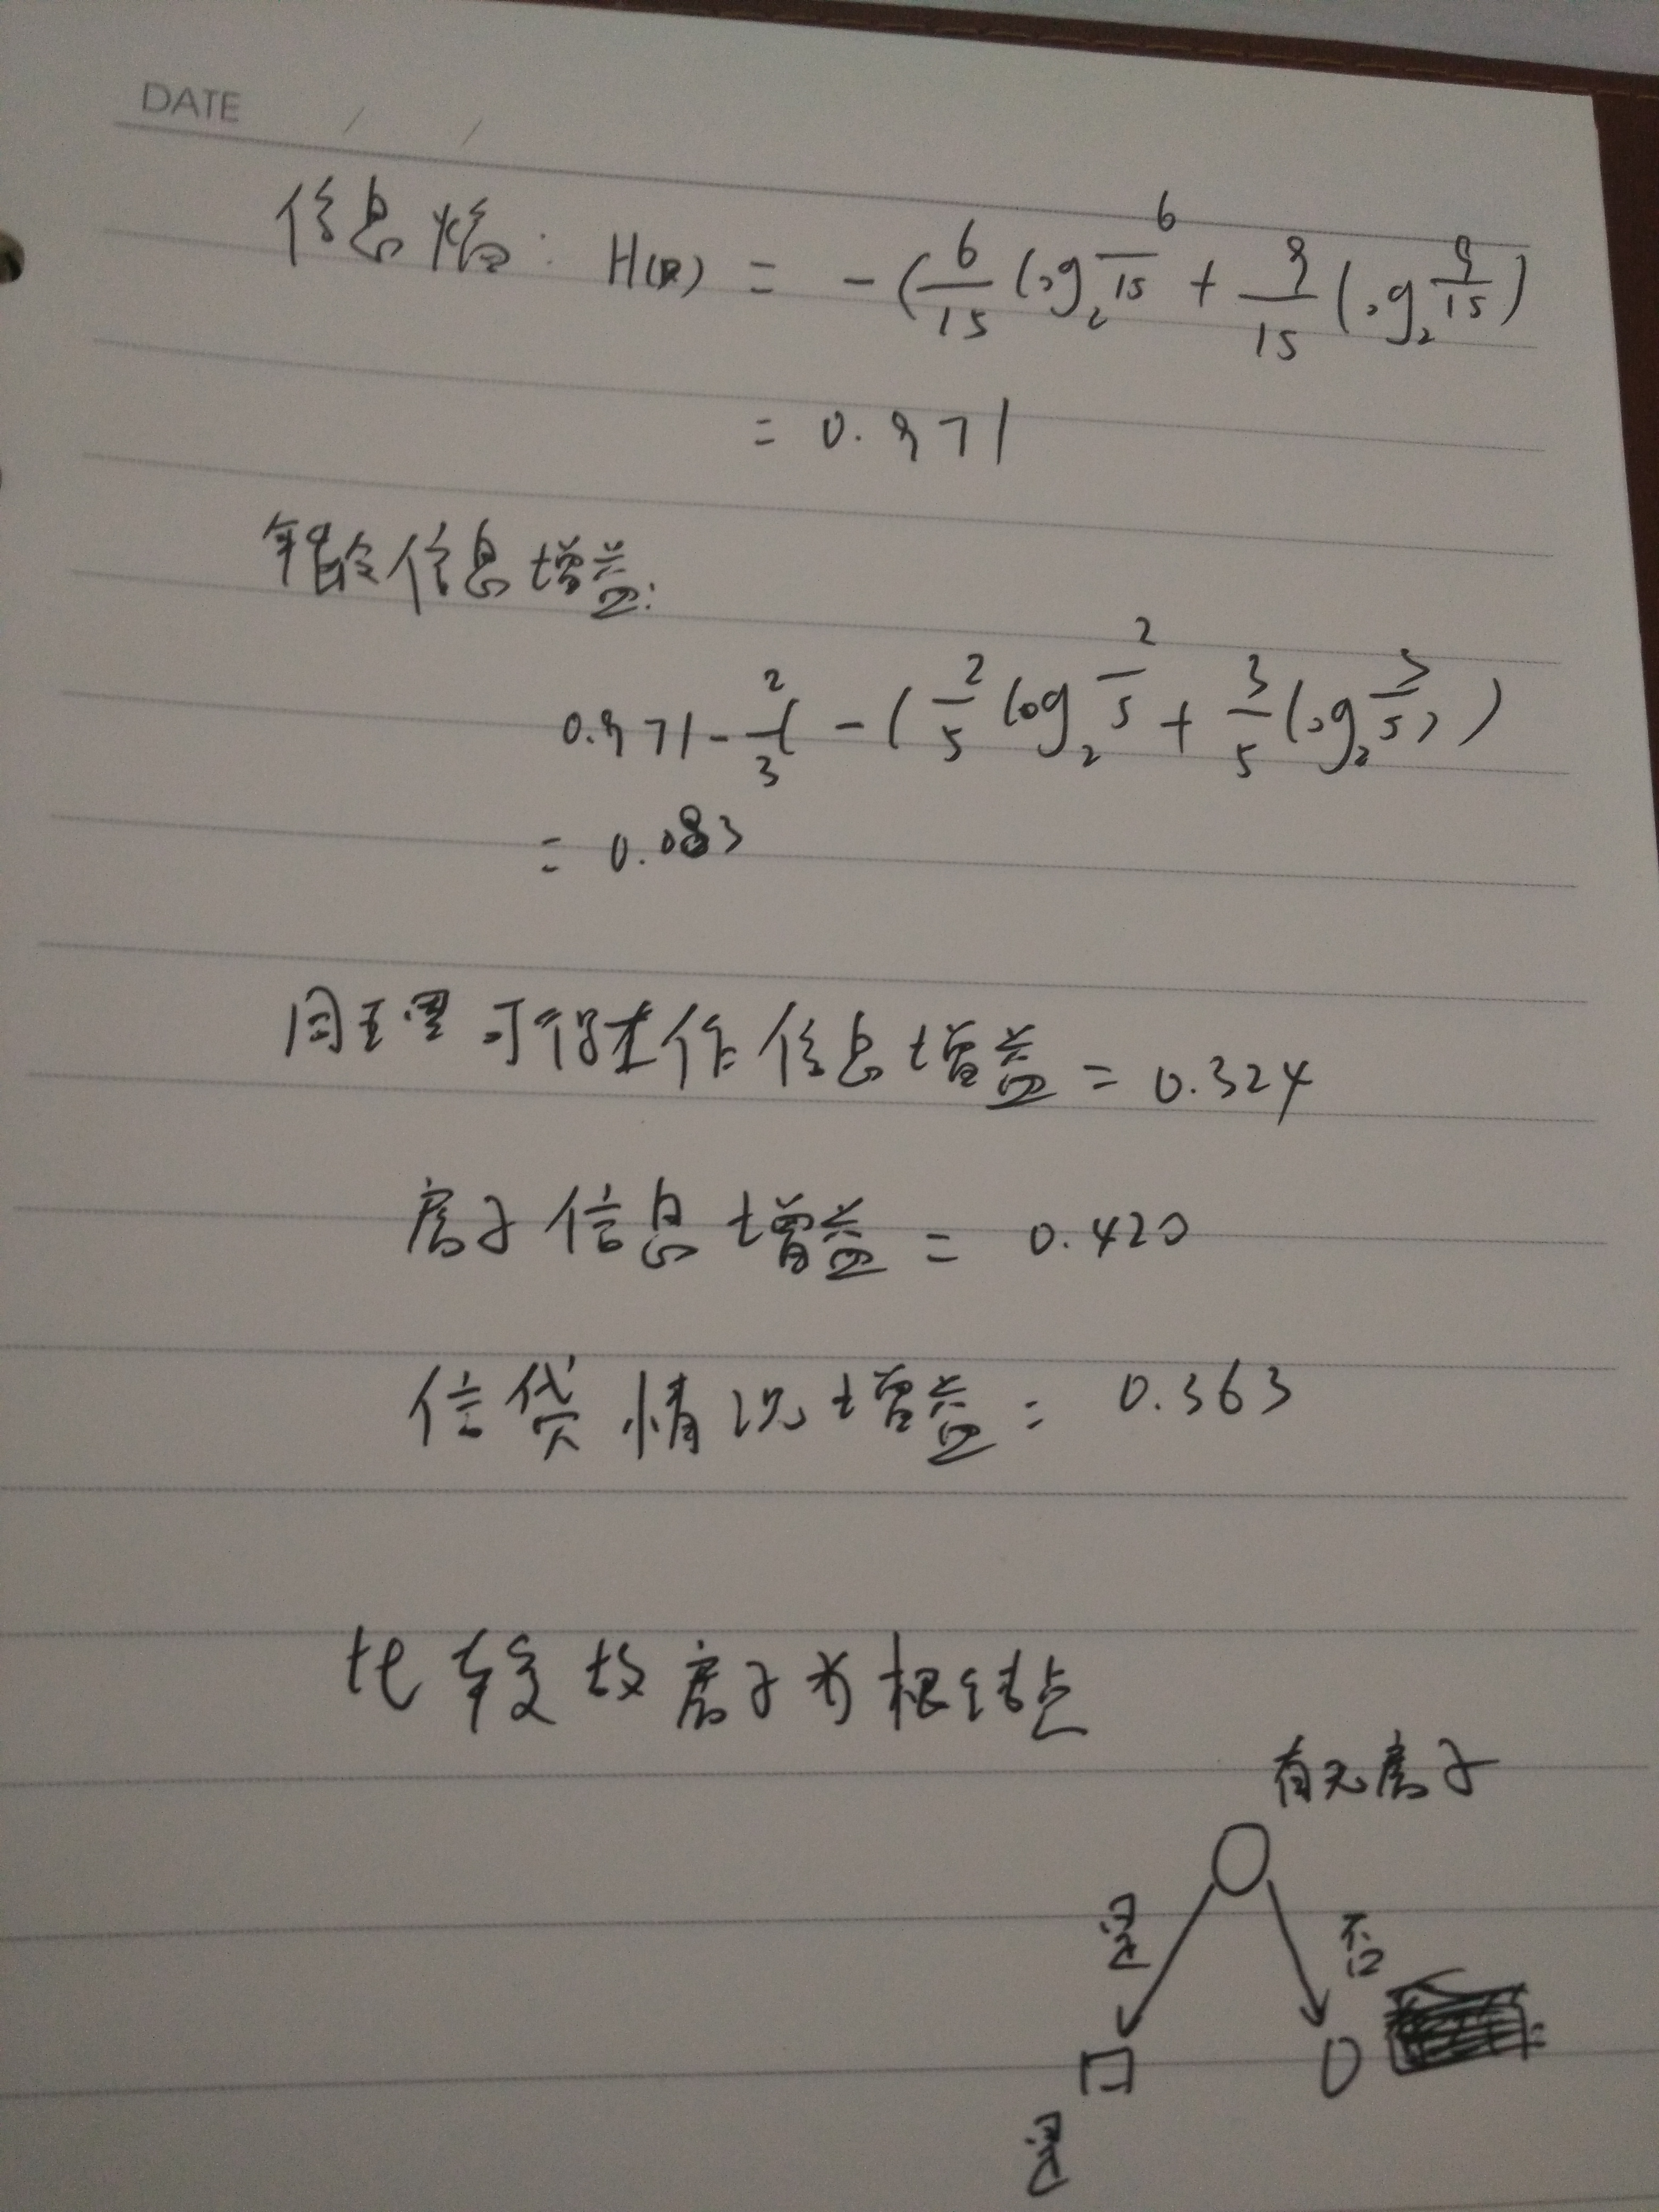 DATE / /
信息熵: H(D) = -(6/15 log₂ 6/15 + 9/15 log₂ 9/15)
= 0.971
年龄信息增益:
0.971 - 2/3(-(2/5 log₂ 2/5 + 3/5 log₂ 3/5))
= 0.083
同理可得工作信息增益 = 0.324
房子信息增益 = 0.420
信贷情况增益 = 0.363
比较故房子为根结点
有无房子
是 否
是